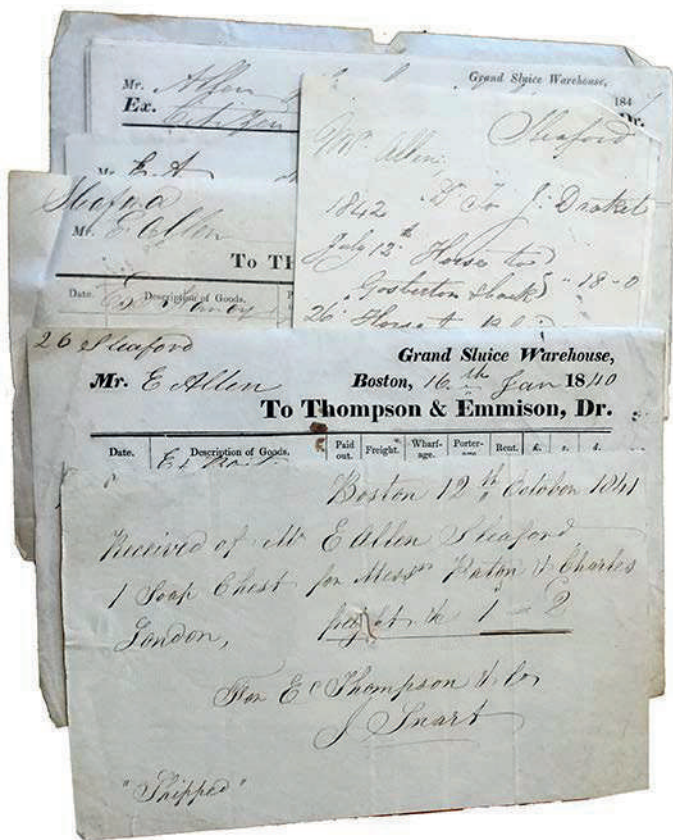 Grand Sluice Warehouse,
Mr. Allen
184
Ex. Citizen
Dr.
Mr. E A
Sleaford
Mr. Allen
1842 Dr To J. Drake
July 12th Horse to
Gosberton 18-0
26 Horse to
Sleaford
Mr. E Allen
To Th
Date. Description of Goods. P
26 Sleaford
Grand Sluice Warehouse,
Mr. E Allen Boston, 16th Jan 1840
To Thompson & Emmison, Dr.
Date. Description of Goods. Paid out. Freight. Wharf-age. Porter- Rent. £. s. d.
Boston 12th October 1841
Received of Mr E Allen Sleaford
1 Soap Chest for Messrs & Charles
London, freight &c 1-2
For E Thompson & Co
J Snart
"Shipped"